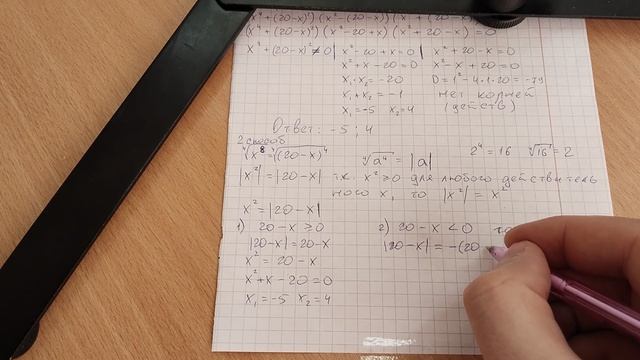 (x⁴+(20-x)²)(x²-(20-x))(x²+(20-x))=0
(x⁴+(20-x)²)(x²-20+x)(x²+20-x)=0
x⁴+(20-x)²≠0 | x²-20+x=0 | x²+20-x=0
x²+x-20=0 x²-x+20=0
x₁·x₂=-20 D=1²-4·1·20=-79
x₁+x₂=-1 нет корней
x₁=-5 x₂=4 (действ)
Ответ: -5; 4
2 способ
⁴√x⁸=⁴√(20-x)⁴ ⁴√a⁴=|a| 2⁴=16 ⁴√16=2
|x²|=|20-x| т.к. x²≥0 для любого действитель
ного x, то |x²|=x²
x²=|20-x|
1) 20-x≥0 2) 20-x<0
|20-x|=20-x |20-x|=-(20
x²=20-x
x²+x-20=0
x₁=-5 x₂=4